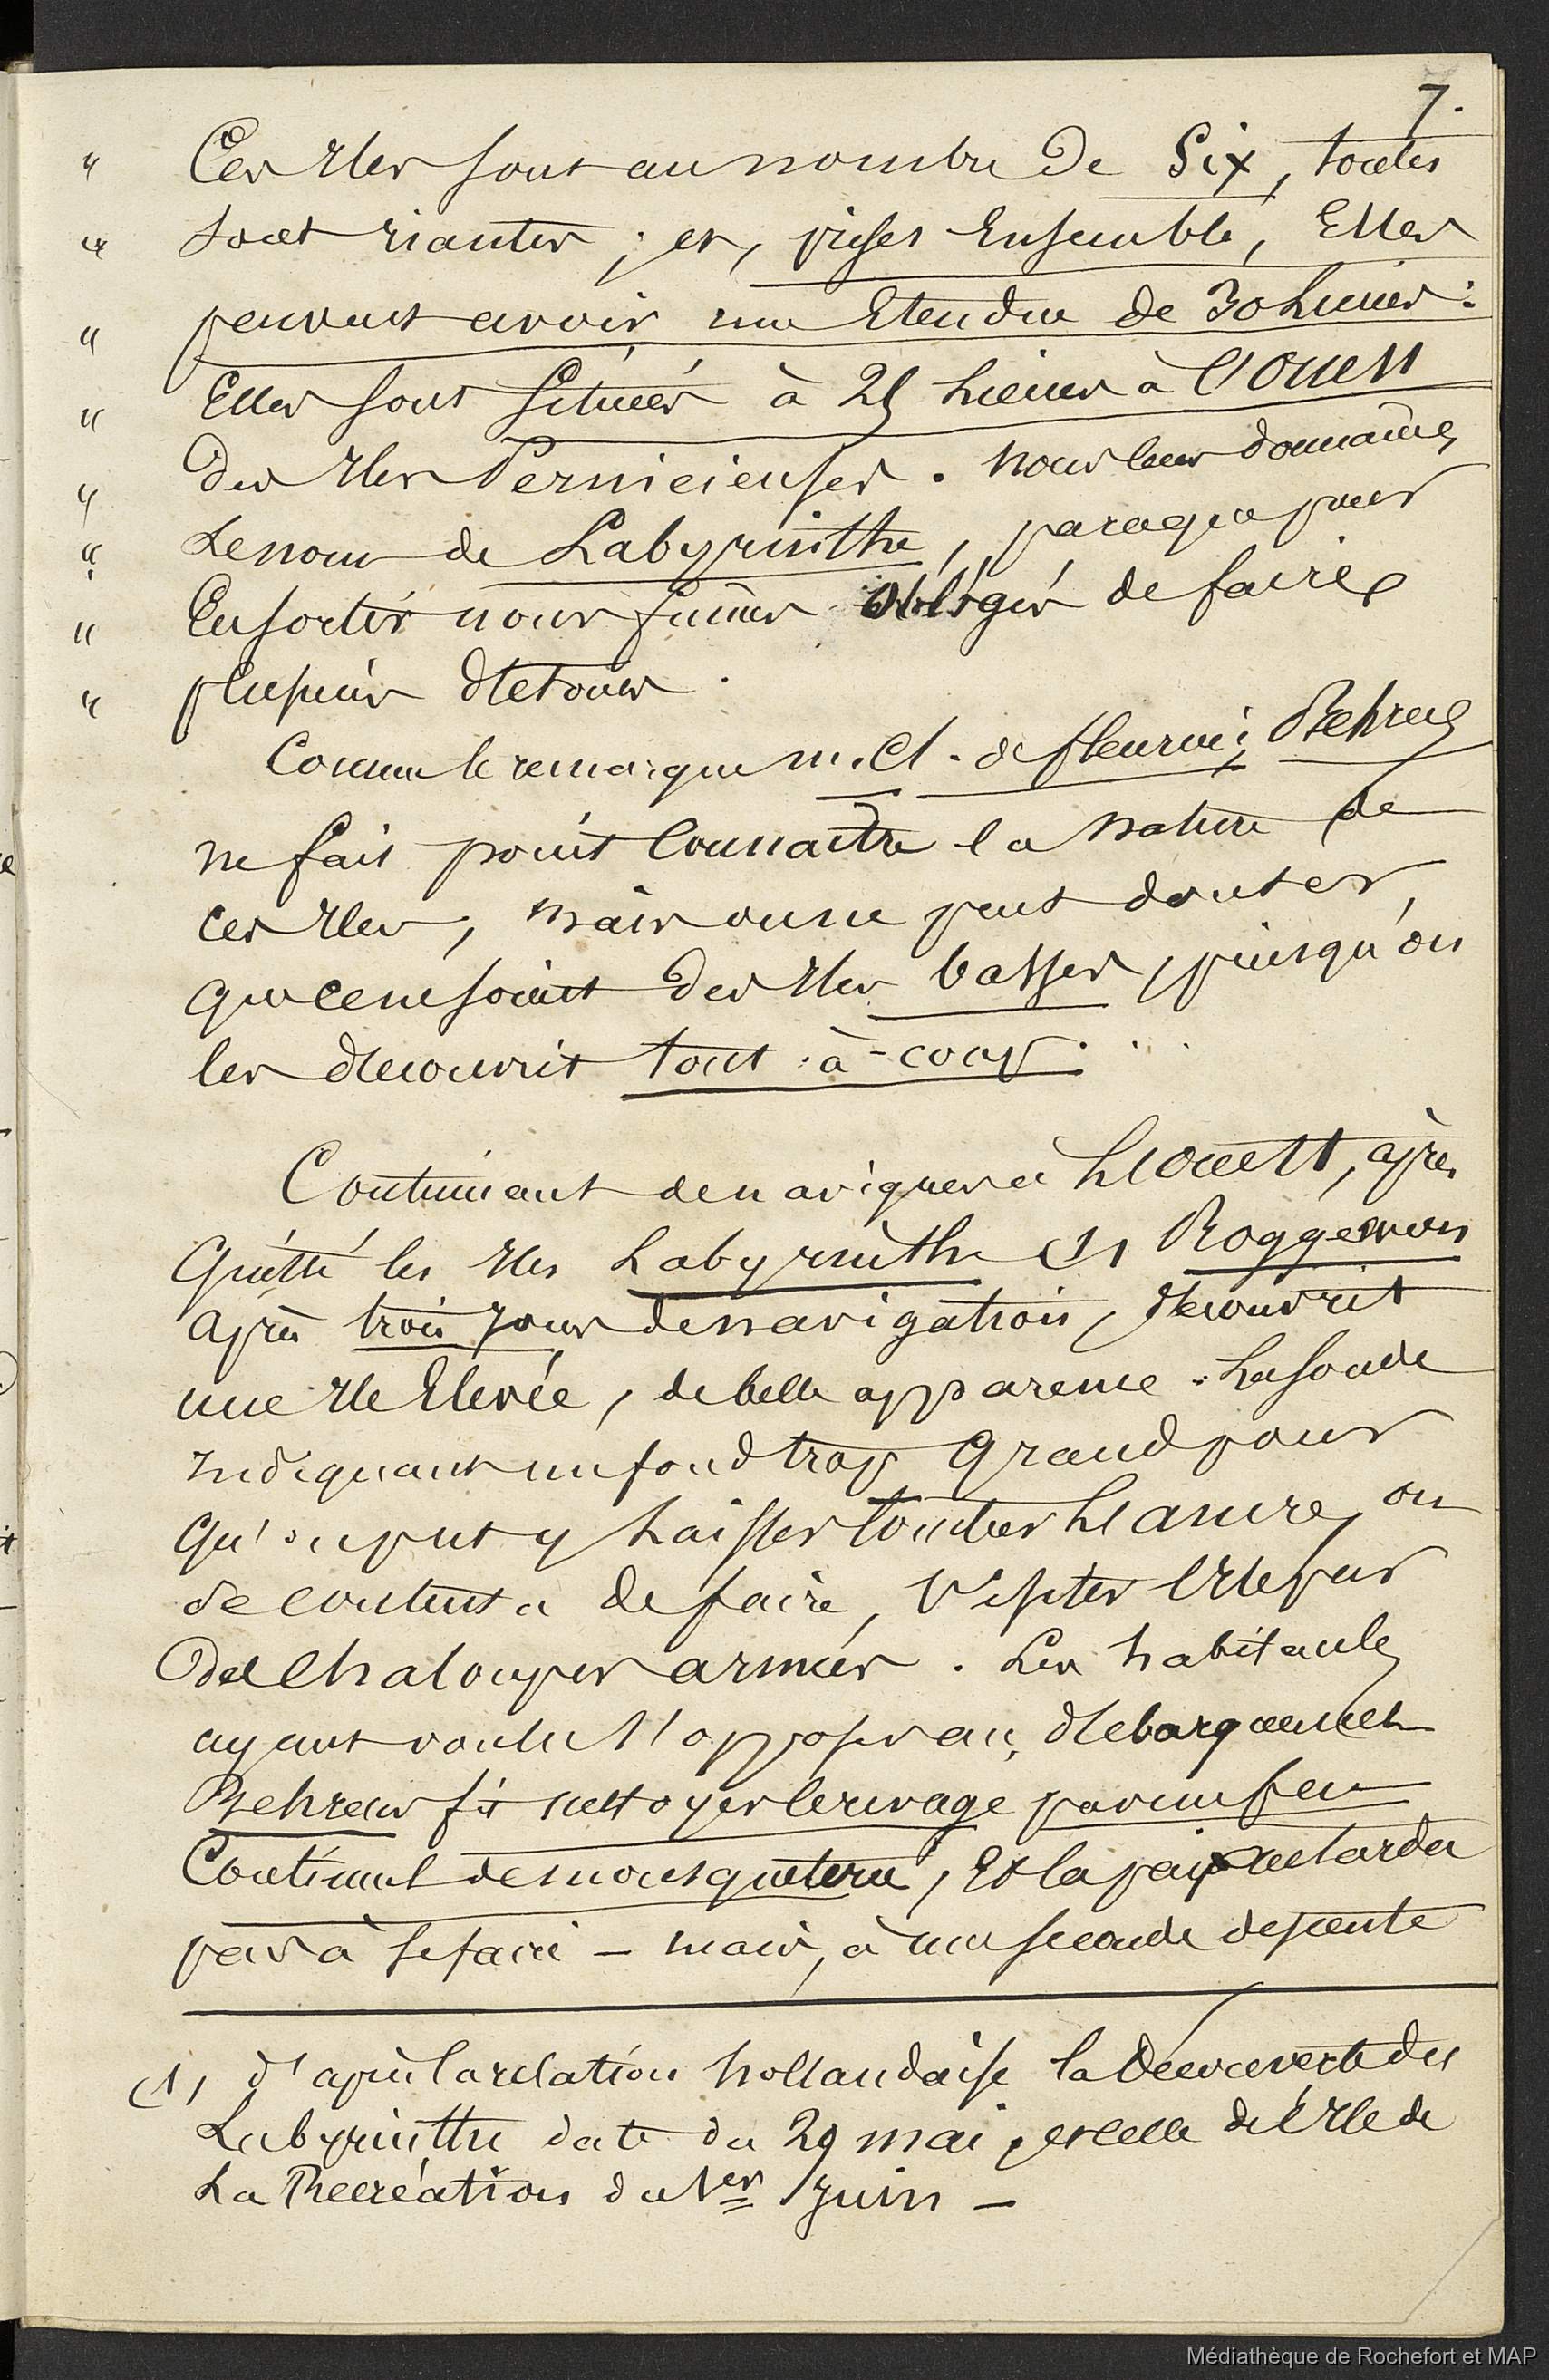 7.
" Ces Iles sont au nombre de Six, toutes
" sont riantes ; et, prises Ensemble, Elles
" peuvent avoir une Etendue de 30 Lieues :
" Elles sont situées à 25 Lieues à l'Ouest
" des Iles Pernicieuses. Nous leur donnâmes
" Le nom de Labyrinthe, parceque pour
" En sortir nous fumes obligés de faire
" plusieurs détours.
Comme le remarque M. Cl. de fleurieu, Behrens
ne fait point Connaitre la Nature de
ces Iles, mais on ne peut douter,
que ce ne soient des Iles basses, puisqu'on
les découvrit tout-à-coup...
Continuant de naviguer à L'Ouest, après
Quitté les Iles Labyrinthe (1) Roggewen
après trois jours de navigation, découvrit
une Ile Elevée, de belle apparence. La sonde
Indiquant un fond trop Grand pour
Qu'on put y Laisser tomber L'ancre, on
se contenta de faire, visiter l'Ile par
des Chaloupes armées. Les habitants
ayant voulu s'opposer au débarquement
Behrens fit nettoyer le rivage par un feu
Continuel de mousqueterie, Et la paix ne tarda
pas à se faire – mais, à une seconde descente
(1) d'après la relation hollandaise la Découverte du
Labyrinthe date du 29 mai, et celle de l'Ile de
La Récréation du 1er Juin –
Médiathèque de Rochefort et MAP